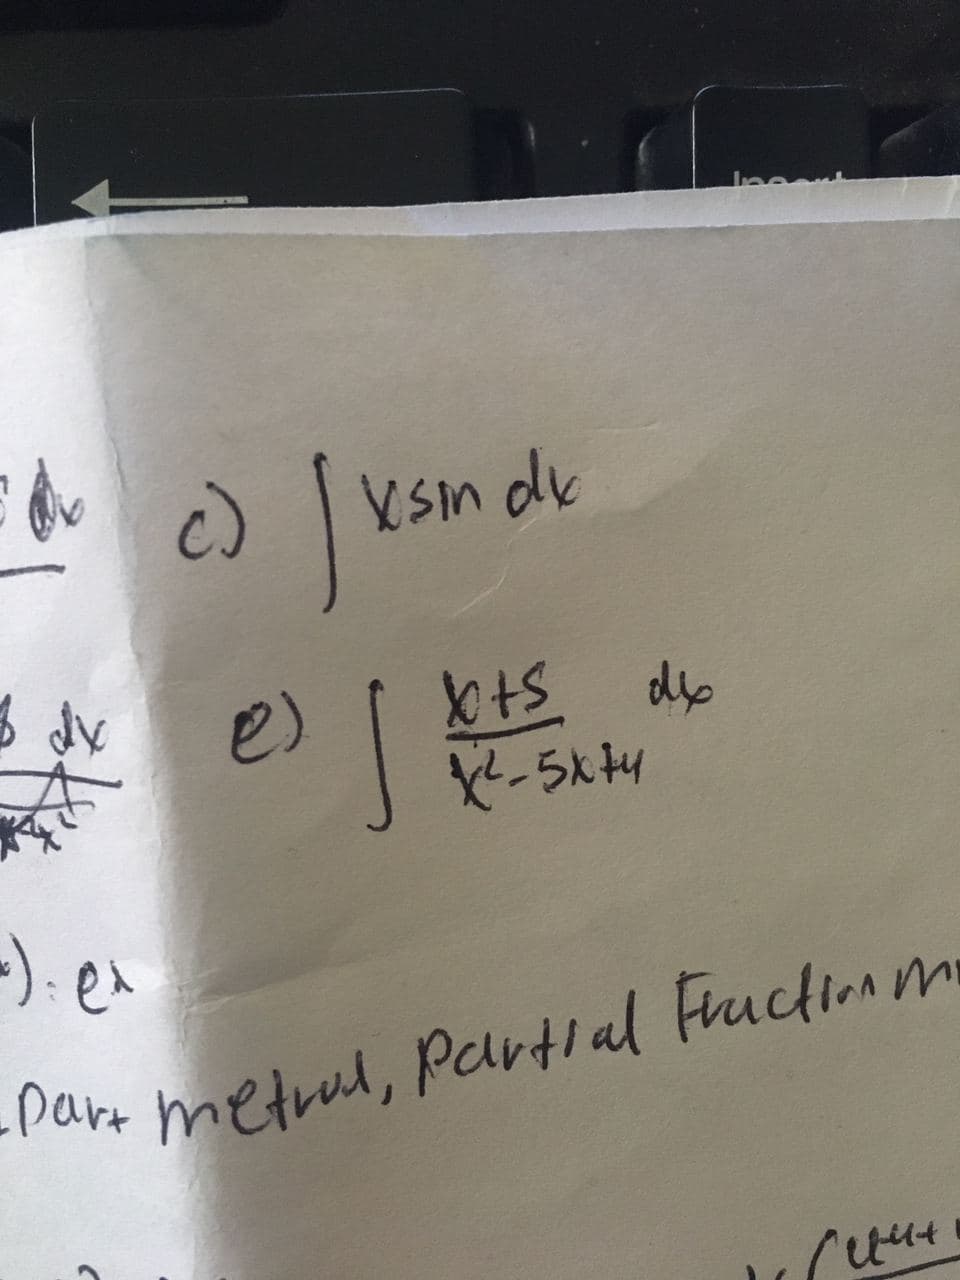 Insert
dx c) ∫ x sin dx
dx e) ∫ x+5 dx
x²-5x+4
). ex
part metrod, partial Fraction